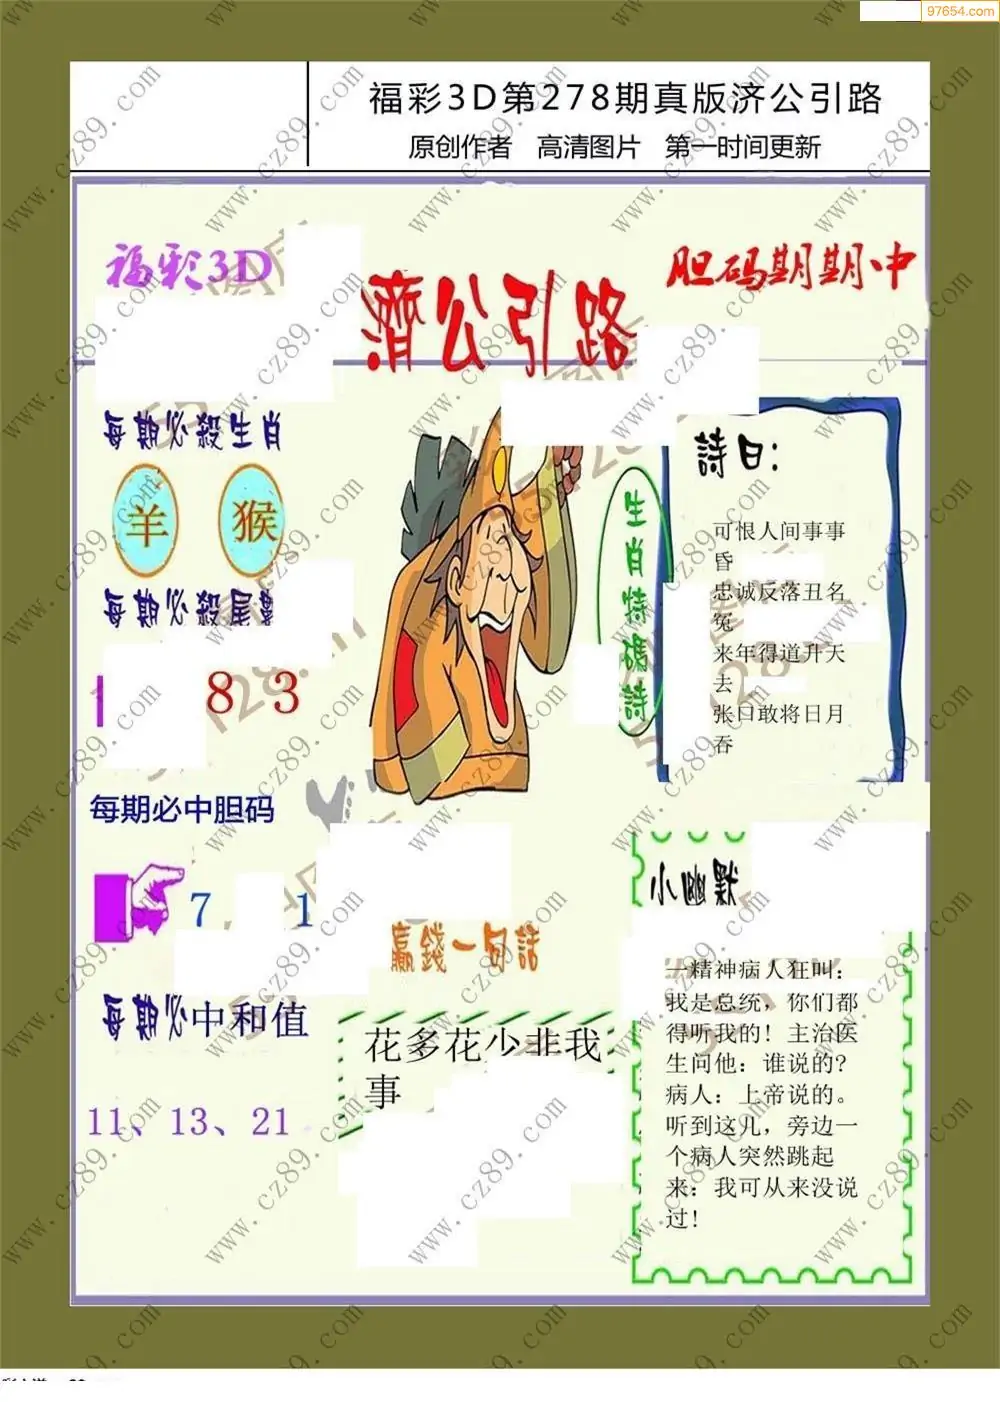 97654.com
福彩3D第278期真版济公引路
原创作者 高清图片 第一时间更新
福彩3D
濟公引路
胆码期期中
每期必殺生肖
羊 猴
每期必殺尾數
8 3
每期必中胆码
7 1
每期必中和值
11、13、21
生肖特碼詩
詩曰:
可恨人间事事
昏
忠诚反落丑名
冤
来年得道升天
去
张口敢将日月
吞
赢錢一句話
花多花少非我
事
小幽默
一精神病人狂叫:
我是总统，你们都
得听我的! 主治医
生问他: 谁说的?
病人: 上帝说的。
听到这儿，旁边一
个病人突然跳起
来: 我可从来没说
过!
www.cz89.com